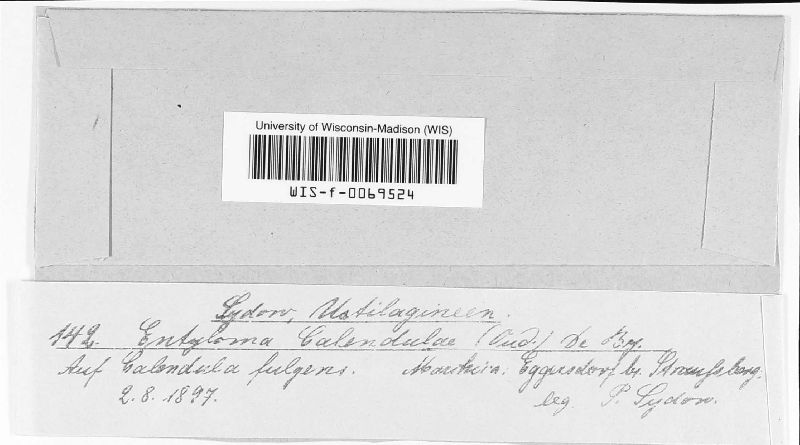 University of Wisconsin-Madison (WIS)
WIS-f-0069524
Sydow, Ustilagineen.
142. Entyloma Calendulae (Oud.) De By.
Auf Calendula fulgens. Marchica: Eggersdorf br. Straussberg.
2. 8. 1897. leg. P. Sydow.